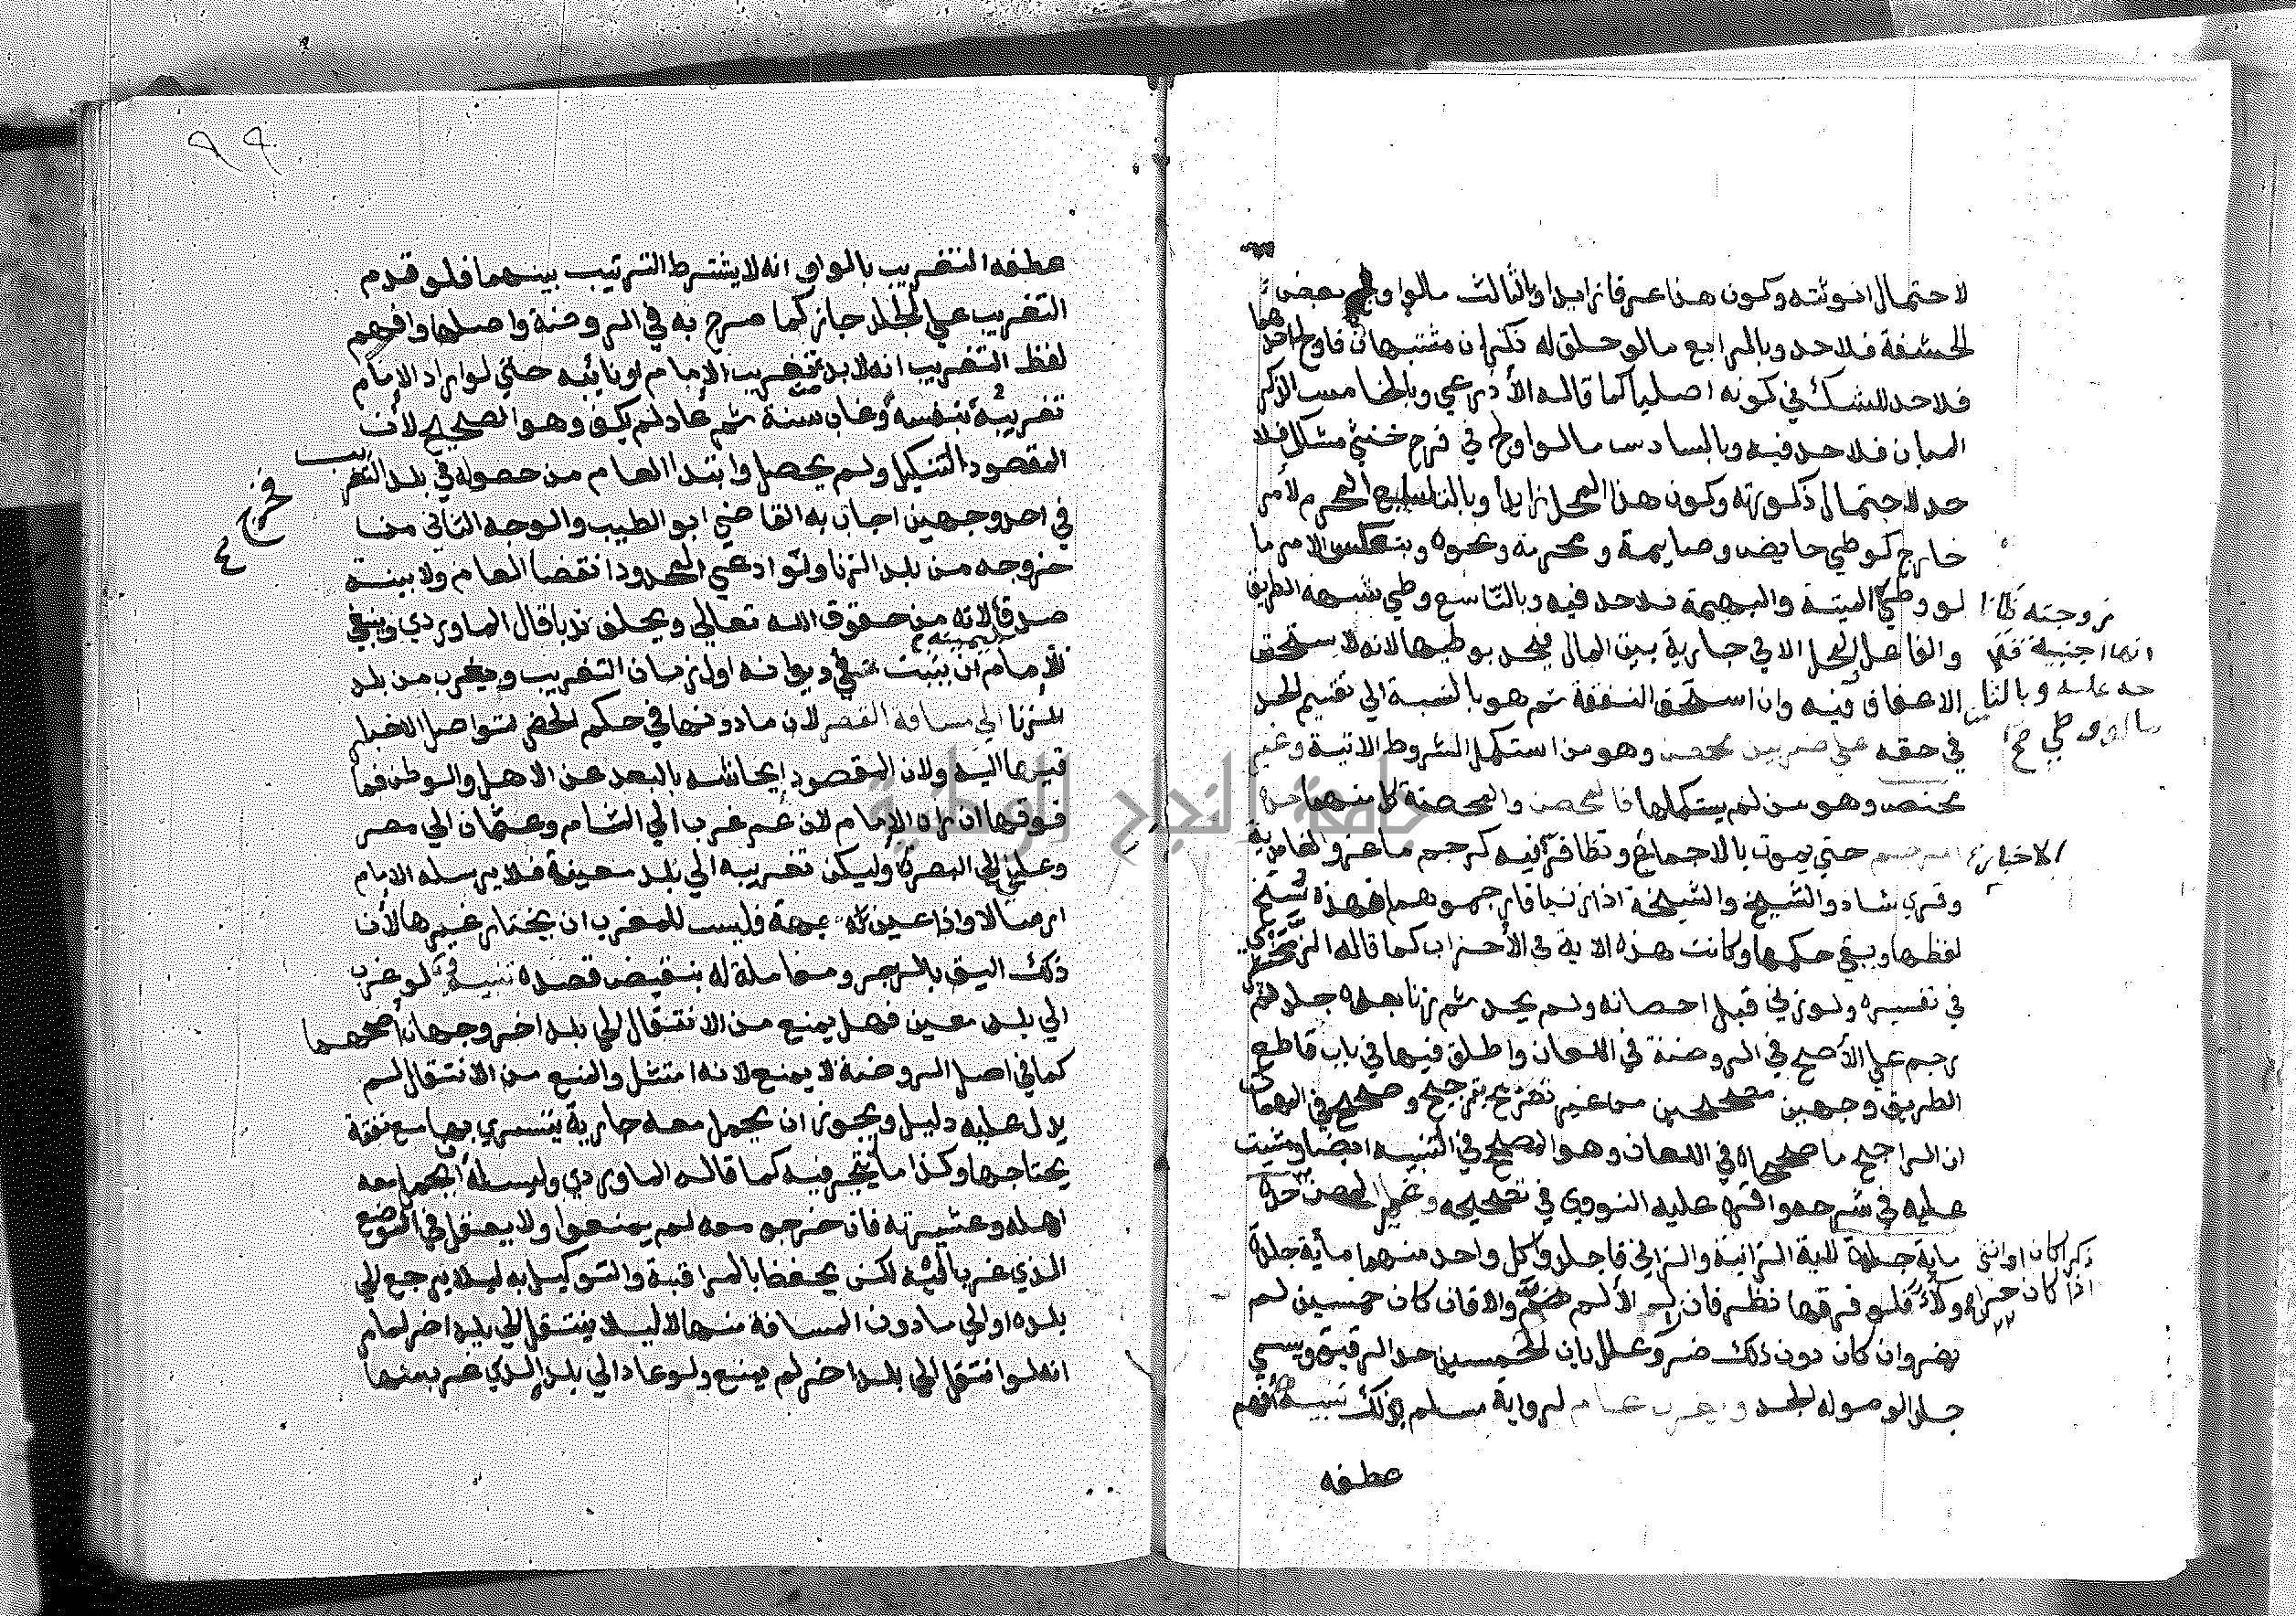 لاحتمال انوثته وكون هذا عرقا زايدا وبالثالث مالو اولج بعض
الحشفة فلا حد وبالرابع مالو خلق له ذكران مشتبهان فاولج احدهما
فلا حد للشك في كونه اصليا كما قاله الأذرعي وبالخامس الذكر
المبان فلا حد فيه وبالسادس مالو اولج في فرج خنثي مشكل فلا
حد لاحتمال ذكورته وكون هذا المحل زايدا وبالسابع المحرم لأمر
خارج كوطي حايض وصايمة ومحرمة ونحوه وبعكس الامر ما
لو وطي الميتة والبهيمة فلا حد فيه وبالتاسع وطي شبهة الطريق
والفاعل والمحل الا في جارية بيت المال فيحد بوطيها لانه لا يستحق
الاعفاف فيه وان استحق النفقة ثم هو بالنسبة الي تقسيم الحد
في حقه علي ضربين محصن وهو من استكمل الشروط الاتية وغير
محصن وهو من لم يستكملها فالمحصن والمحصنة كل منهما حده
الرجم حتي يموت بالاجماع وتظافر فيه كرجم ماعز والغامدية
وقري شاذ والشيخ والشيخة اذا زنيا فارجموهما فهذه نسخ
لفظها وبقي حكمها وكانت هذه الاية في الأحزاب كما قاله الزمخشري
في تفسيره ولو زني قبل احصانه ولم يحد ثم زنا بعده جلد ثم
رجم علي الأصح في الروضة في اللعان واطلق فيها في باب قاطع
الطريق وجهين مصححين من غير تصريح بترجيح وصحح في المهمات
ان الراجح ما صححاه في اللعان وهو المصحح في التنبيه ايضا ومشيت
عليه في شرحه واقره عليه النووي في تصحيحه وغير المحصن حده
ماية جلدة لاية الزانية والزاني فاجلدوا كل واحد منهما مائة جلدة
ولاء فلو فرقها نظر فان لم يزل الألم والا فان كان خمسين لم
يضر وان كان دون ذلك ضر وعلل بان الخمسين حد الرقيق وسمي
جلدا لوصوله للجلد وتغريب عام لرواية مسلم بذلك تنبيه أفهم
عطفه
زوجته ظانا
انها اجنبية
حد عليه وبالثا
مالو وطي
الاخبار
ذكرا كان او انثي
اذا كان حرا
٩٩
عطفه التغريب بالواو انه لا يشترط الترتيب بينهما فلو قدم
التغريب علي الجلد جاز كما صرح به في الروضة واصلها وافهم
لفظ التغريب انه لا بد من تغريب الإمام او نائبه حتي لو اراد الإمام
تغريبه بنفسه وغاب سنة ثم عاد لم يكف وهو الصحيح لأن
المقصود التنكيل ولم يحصل وابتدا العام من حصوله في بلد التغريب
في احد وجهين اجاب به القاضي ابو الطيب والوجه الثاني من
خروجه من بلد الزنا ولو ادعي المحدود انقضا العام ولا بينة
صدق لانه من حقوق الله تعالي ويحلف ندبا قال الماوردي وينبغي
للأمام أن يثبت في ديوانه اول زمان التغريب ويغرب من بلد
الزنا الي مسافة القصر لان ما دونها في حكم الحضر لتواصل الاخبار
فيها اليه ولان المقصود إيحاشه بالبعد عن الاهل والوطن فما
فوقها ان رآه الإمام لان عمر غرب الي الشام وعثمان الي مصر
وعلي الي البصرة وليكن تغريبه الي بلد معينة فلا يرسله الامام
ارسالا واذا عين له جهة فليس للمغرب ان يختار غيرها لأن
ذلك اليق بالزجر ومعاملة له بنقيض قصده تنبيه لو غرب
الي بلد معين فهل يمنع من الانتقال الي بلد اخر وجهان أصحهما
كما في اصل الروضة لا يمنع لانه امتثل والمنع من الانتقال لم
يدل عليه دليل ويجوز ان يحمل معه جارية يتسري بها مع نفقة
يحتاجها وكذا ما يتجر فيه كما قاله الماوردي وليس له أن يحمل معه
اهله وعشيرته فان خرجو معه لم يمنعوا ولا يعتقل في الموضع
الذي غرب اليه لكن يحفظ بالمراقبة والتوكيل به ليلا يرجع الي
بلده او الي ما دون المسافة منها لا ليلا ينتقل الي بلد اخر لما مر
انه لو انتقل الي بلد اخر لم يمنع ولو عاد الي بلد الذي غرب منها